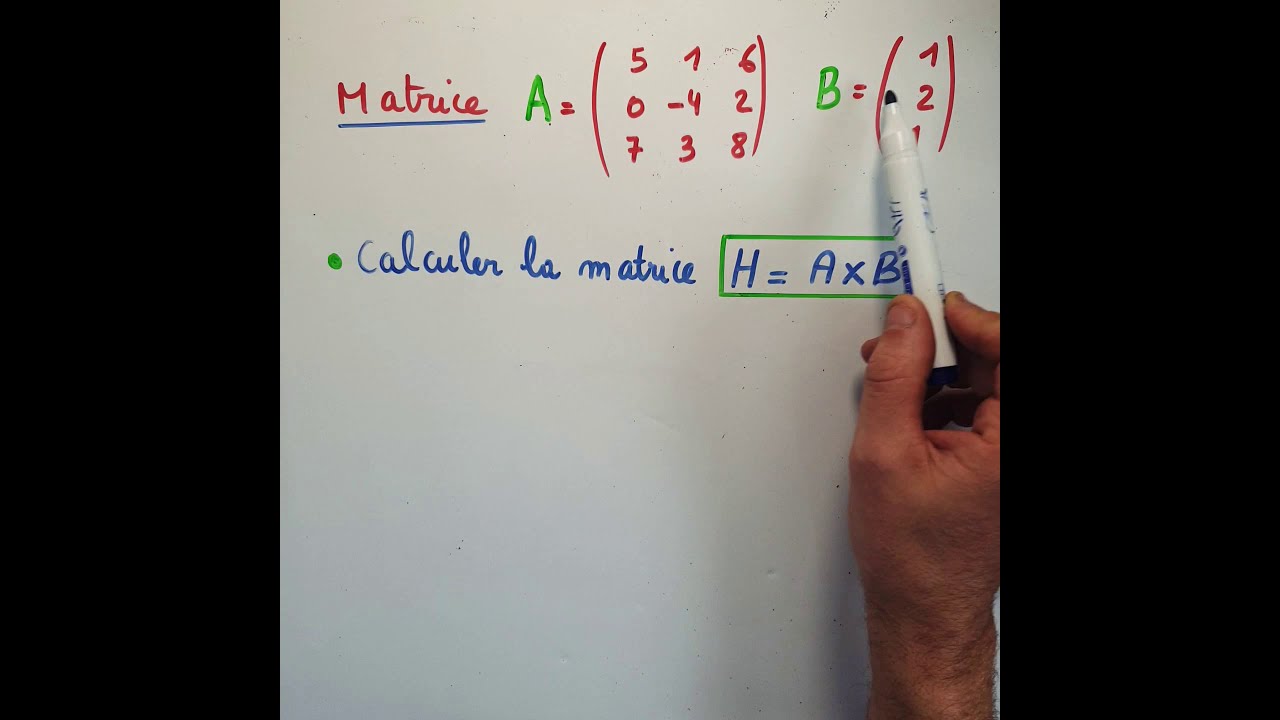 Matrice A = ( 5 1 6 B = ( 1
0 -4 2 2
7 3 8 ) 1 )
• Calculer la matrice H = A x B